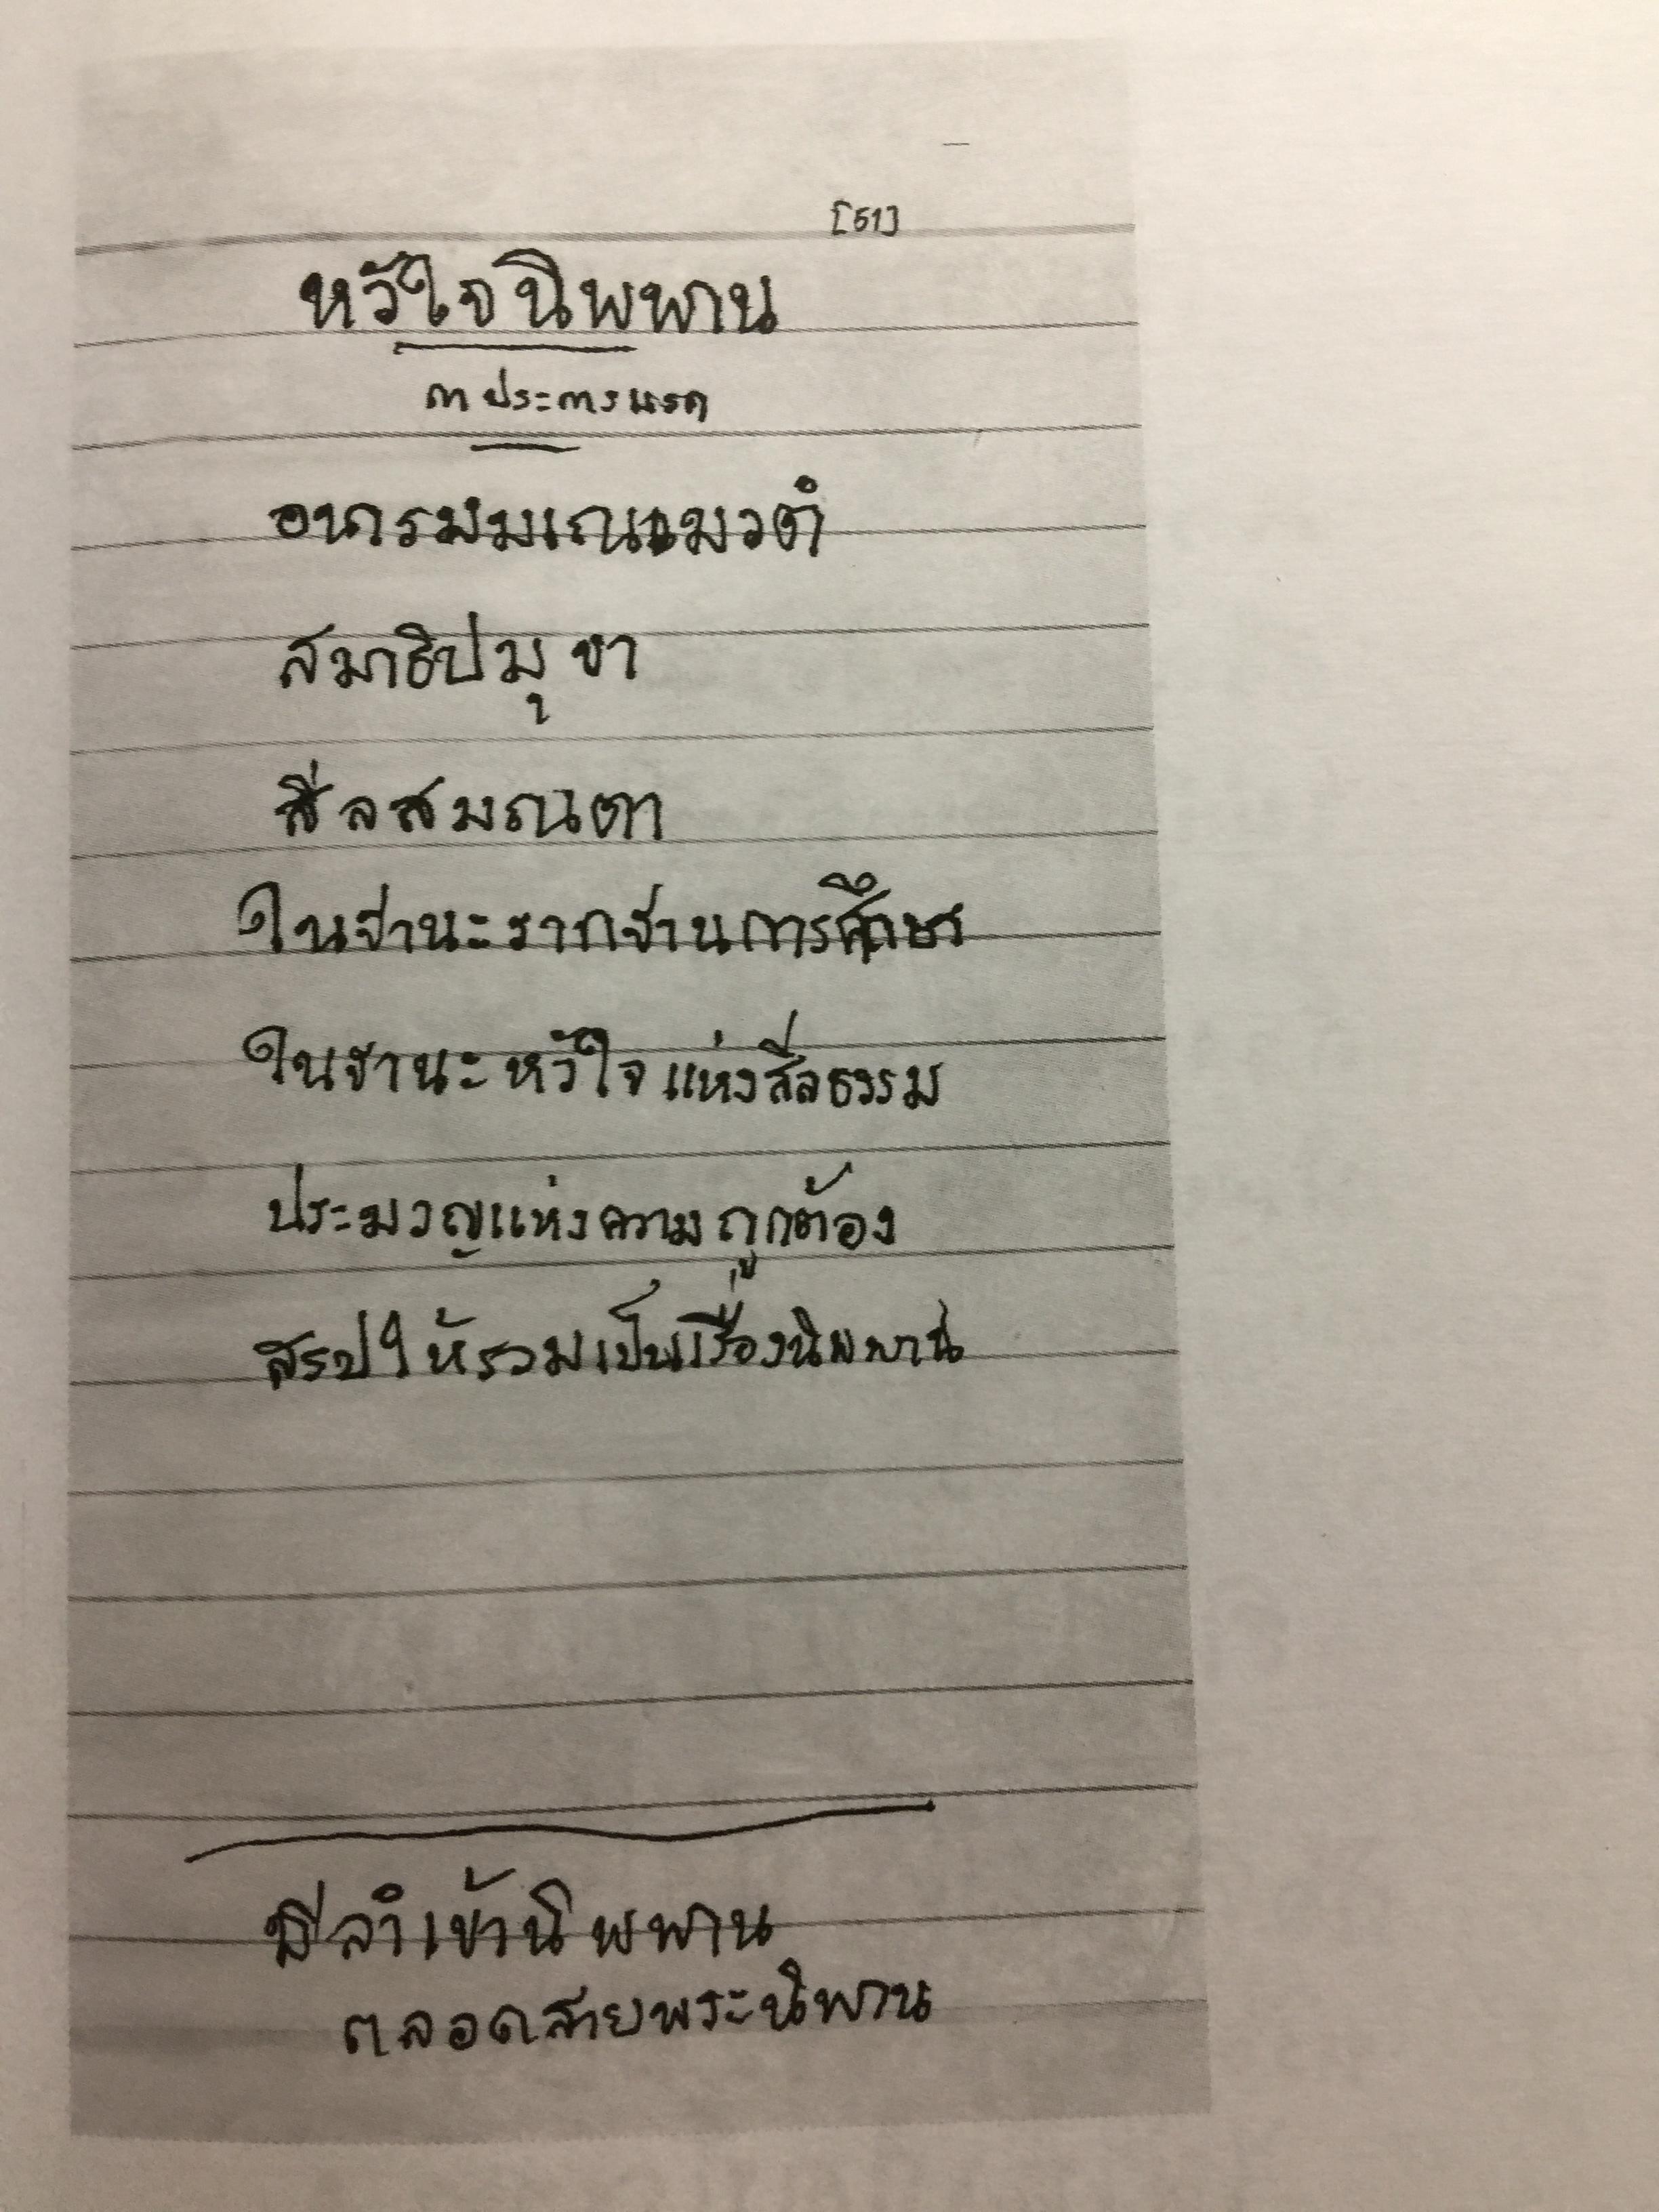 [51]
หัวใจนิพพาน
ประการแรก
สมาธิปมุขา
สีลสมณตา
ในฐานะรากฐานการศึกษา
ในฐานะหัวใจแห่งสีลธรรม
ประมวญแห่งความถูกต้อง
สรปให้รวมเป็นเรื่องนิพพาน
เข้านิพพาน
ตลอดสายพระนิพาน